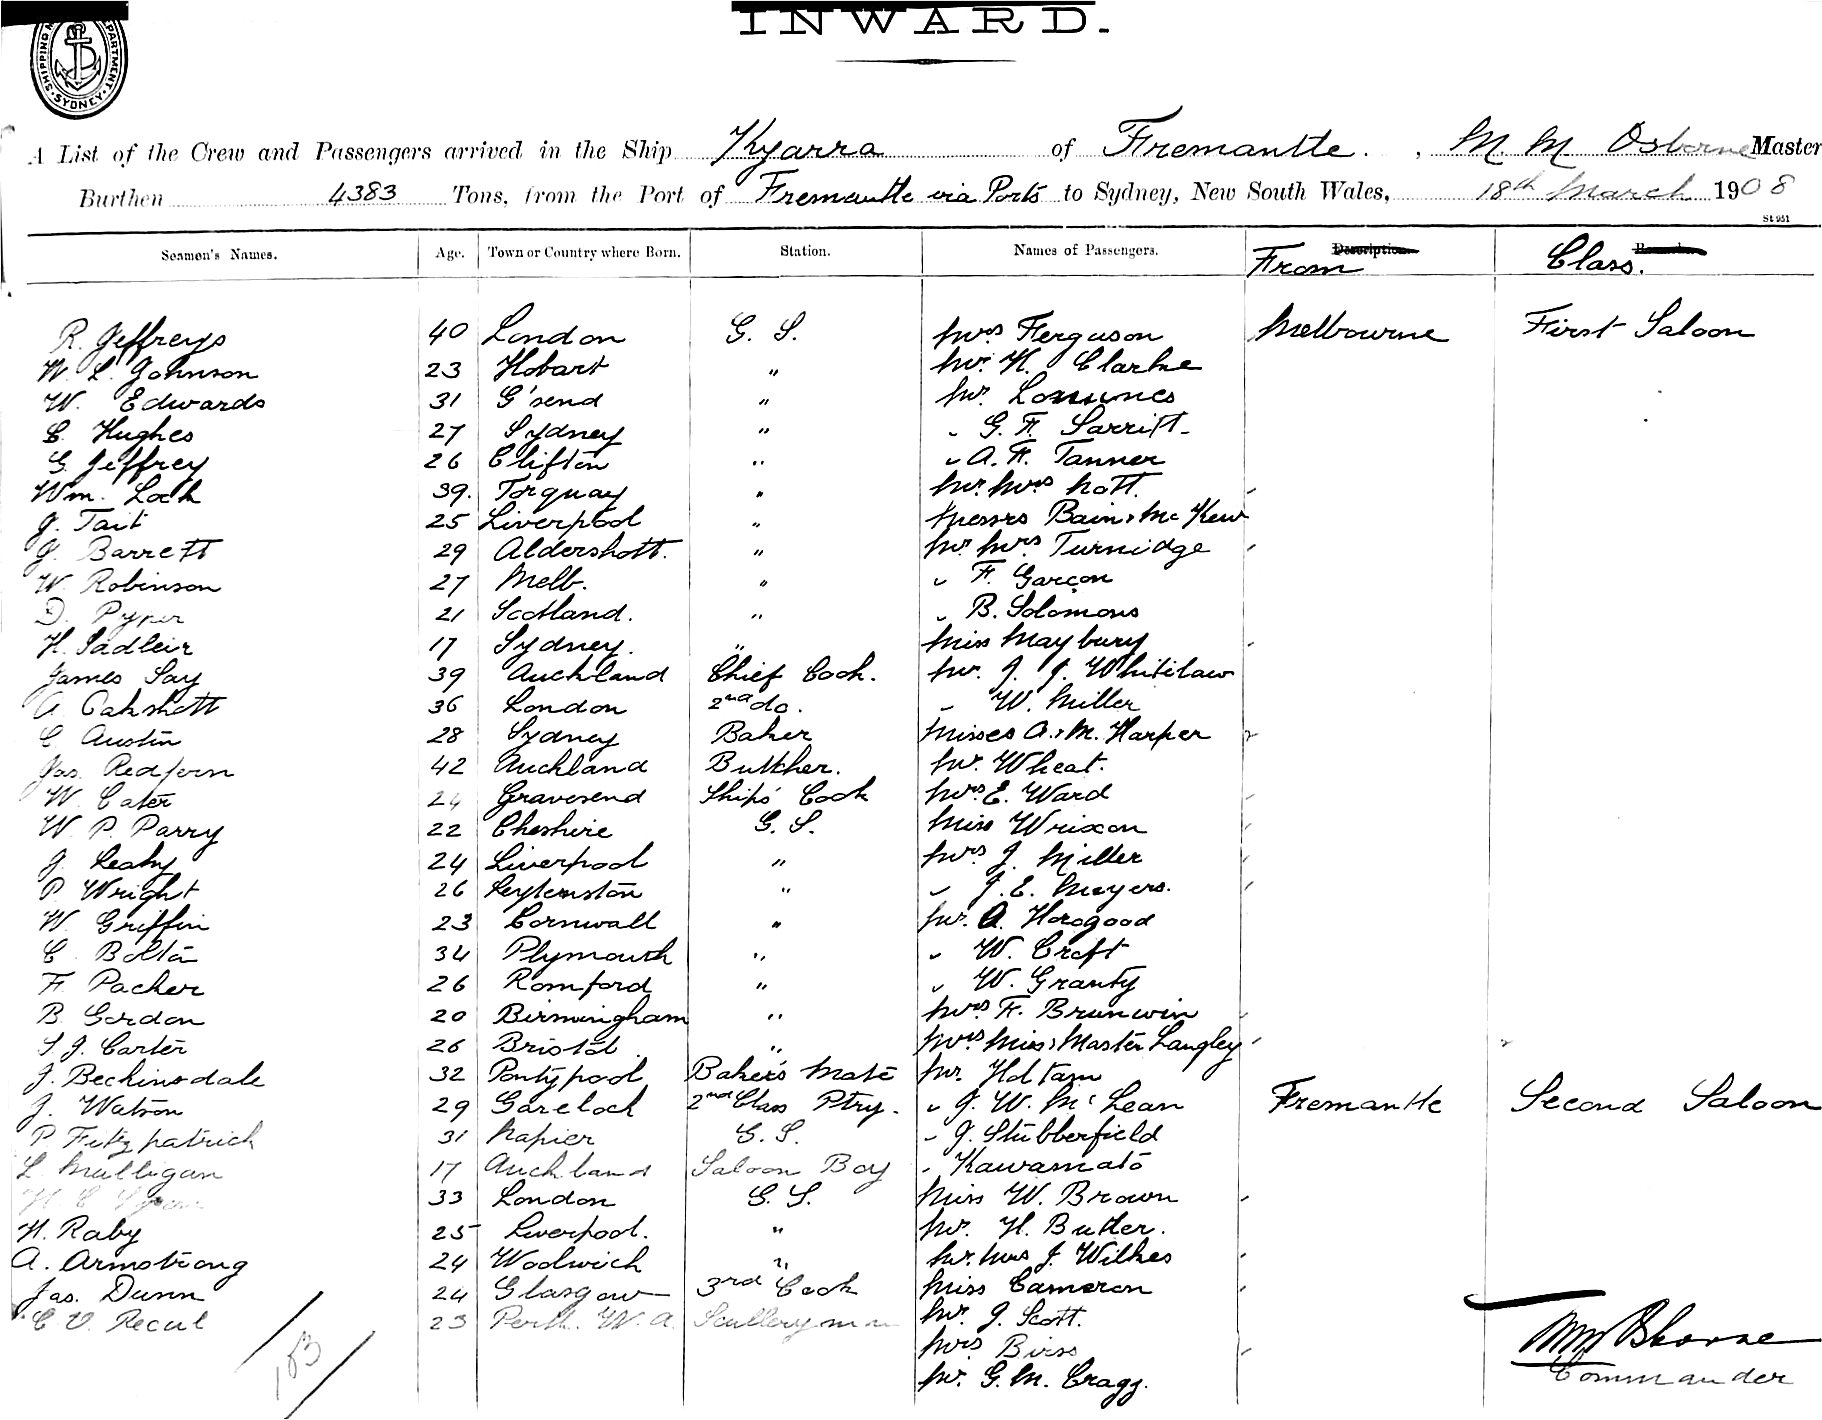 INWARD.
SHIPPING DEPARTMENT SYDNEY
A List of the Crew and Passengers arrived in the Ship Kyarra of Fremantle. , M. M Osborne Master
Burthen 4383 Tons, from the Port of Fremantle via Ports to Sydney, New South Wales, 18th March 1908
St 951
Seamen's Names. Age. Town or Country where Born. Station. Names of Passengers. Description From Class.
R. Jeffreys 40 London G. S. Mrs Ferguson Melbourne First Saloon
W. L. Johnson 23 Hobart " Mr. H. Clarke
W. Edwards 31 G'send " Mr.
C. Hughes 27 Sydney " " G. F.
G. Jeffrey 26 Clifton " " A. F. Tanner
Wm. Lock 39. Torquay " Mr. Mrs Nott.
J. Tait 25 Liverpool " Messrs Bain & McKew
J. Barrett 29 Aldershott. " Mr. Mrs Turnidge
W. Robinson 27 Melb. " " F. Garcon
D. Pyper 21 Scotland. " " B. Solomons
H. Sadleir 17 Sydney. " Miss Maybury
James Say 39 Auckland Chief Cook. Mr. J. J. Whitelaw
A Oakshott 36 London 2nd do. " W. Miller
C Austin 28 Sydney Baker Misses A. & M. Harper
Jas. Redfern 42 Auckland Butcher. Mr. Wheat.
W. Cater 24 Gravesend Ships' Cook Mrs E. Ward
W. P. Parry 22 Cheshire G. S. Miss Wrixon
J. Leahy 24 Liverpool " Mrs J. Miller
P. Wright 26 Leytenston " " J. E. Meyers.
W. Griffin 23 Cornwall " Mr. A. Horsgood
C. Bolton 34 Plymouth " " W. Croft
F. Packer 26 Romford " " W. Granty
B. Gordon 20 Birmingham " Mrs F. Brunwin
S. J. Carter 26 Bristol " Mrs Miss & Master Langley
J. Beckinsdale 32 Pontypool Baker's Mate Mr. Holtam
J. Watson 29 Gareloch 2nd Class Ptry. " J. W. McLean Fremantle Second Saloon
P Fitzpatrick 31 Napier G. S. " J. Stubberfield
L. Mulligan 17 Auckland Saloon Boy " Kawamato
33 London G. S. Miss W. Brown
H. Raby 25 Liverpool. " Mr. H. Butler.
A. Armstrong 24 Woolwich " Mr. Mrs J. Wilkes
Jas. Dunn 24 Glasgow 3rd Cook Miss Cameron
C. V. 23 Perth. W. A. Scullery man Mr. J. Scott.
Mrs Birss
Mr. G. M. Cragg.
183
MM Osborne
Commander